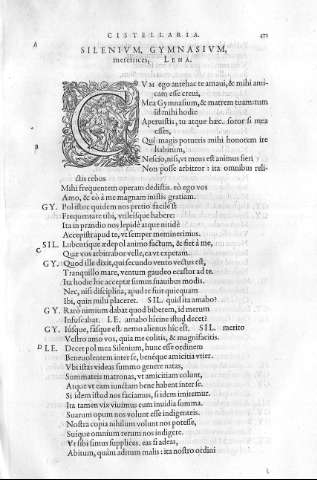 CISTELLARIA. 471
A
SILENIVM, GYMNASIVM,
meretrices, LENA.
CVM ego antehac te amaui, & mihi ami-
cam esse creui,
Mea Gymnasium, & matrem tuam, tum
id mihi hodie
Aperuistis, tu atque hæc. soror si mea
esses,
B
Qui magis potueris mihi honorem ire
habitum,
Nescio, nisi, vt meus est animus fieri
Non posse arbitror: ita omnibus reli-
ctis rebus
Mihi frequentem operam dedistis. eò ego vos
Amo, & eò à me magnam inistis gratiam.
GY. Pol isthoc quidem nos pretio facile est
Frequentare tibi, vtilesque habere:
Ita in prandio nos lepidè atque nitidè
Accepisti apud te, vt semper meminerimus.
SIL. Lubentique ædepol animo factum, & fiet à me,
C
Quæ vos arbitrabor velle, ea vt expetam.
GY. Quod ille dixit, qui secundo vento vectus est,
Tranquillo mare, ventum gaudeo ecastor ad te.
Ita hodie hic acceptæ sumus suauibus modis.
Nec, nisi disciplina, apud te fuit quicquam
Ibi, quin mihi placeret. SIL. quid ita amabo?
GY. Rarò nimium dabat quod biberem, id merum
Infuscabat. LE. amabo hiccine istud decet?
GY. Iúsque, fásque est: nemo alienus hic est. SIL. meritò
Vestro amo vos, quia me colitis, & magnificatis.
D LE. Decet pol mea Silenium, hunc esse ordinem
Beneuolentem inter se, benéque amicitia vtier.
Vbi istas videas summo genere natas,
Summates matronas, vt amicitiam colunt,
Atque vt eam iunctam bene habent inter se.
Si idem istud nos faciamus, si idem imitemur.
Ita tamen vix viuimus cum inuidia summa.
Suarum opum nos volunt esse indigenteis.
Nostra copia nihilum volunt nos potesse,
Suique omnium rerum nos indigere,
Vt sibi simus supplices. eas si adeas,
Abitum, quàm aditum malis: ita nostro ordini